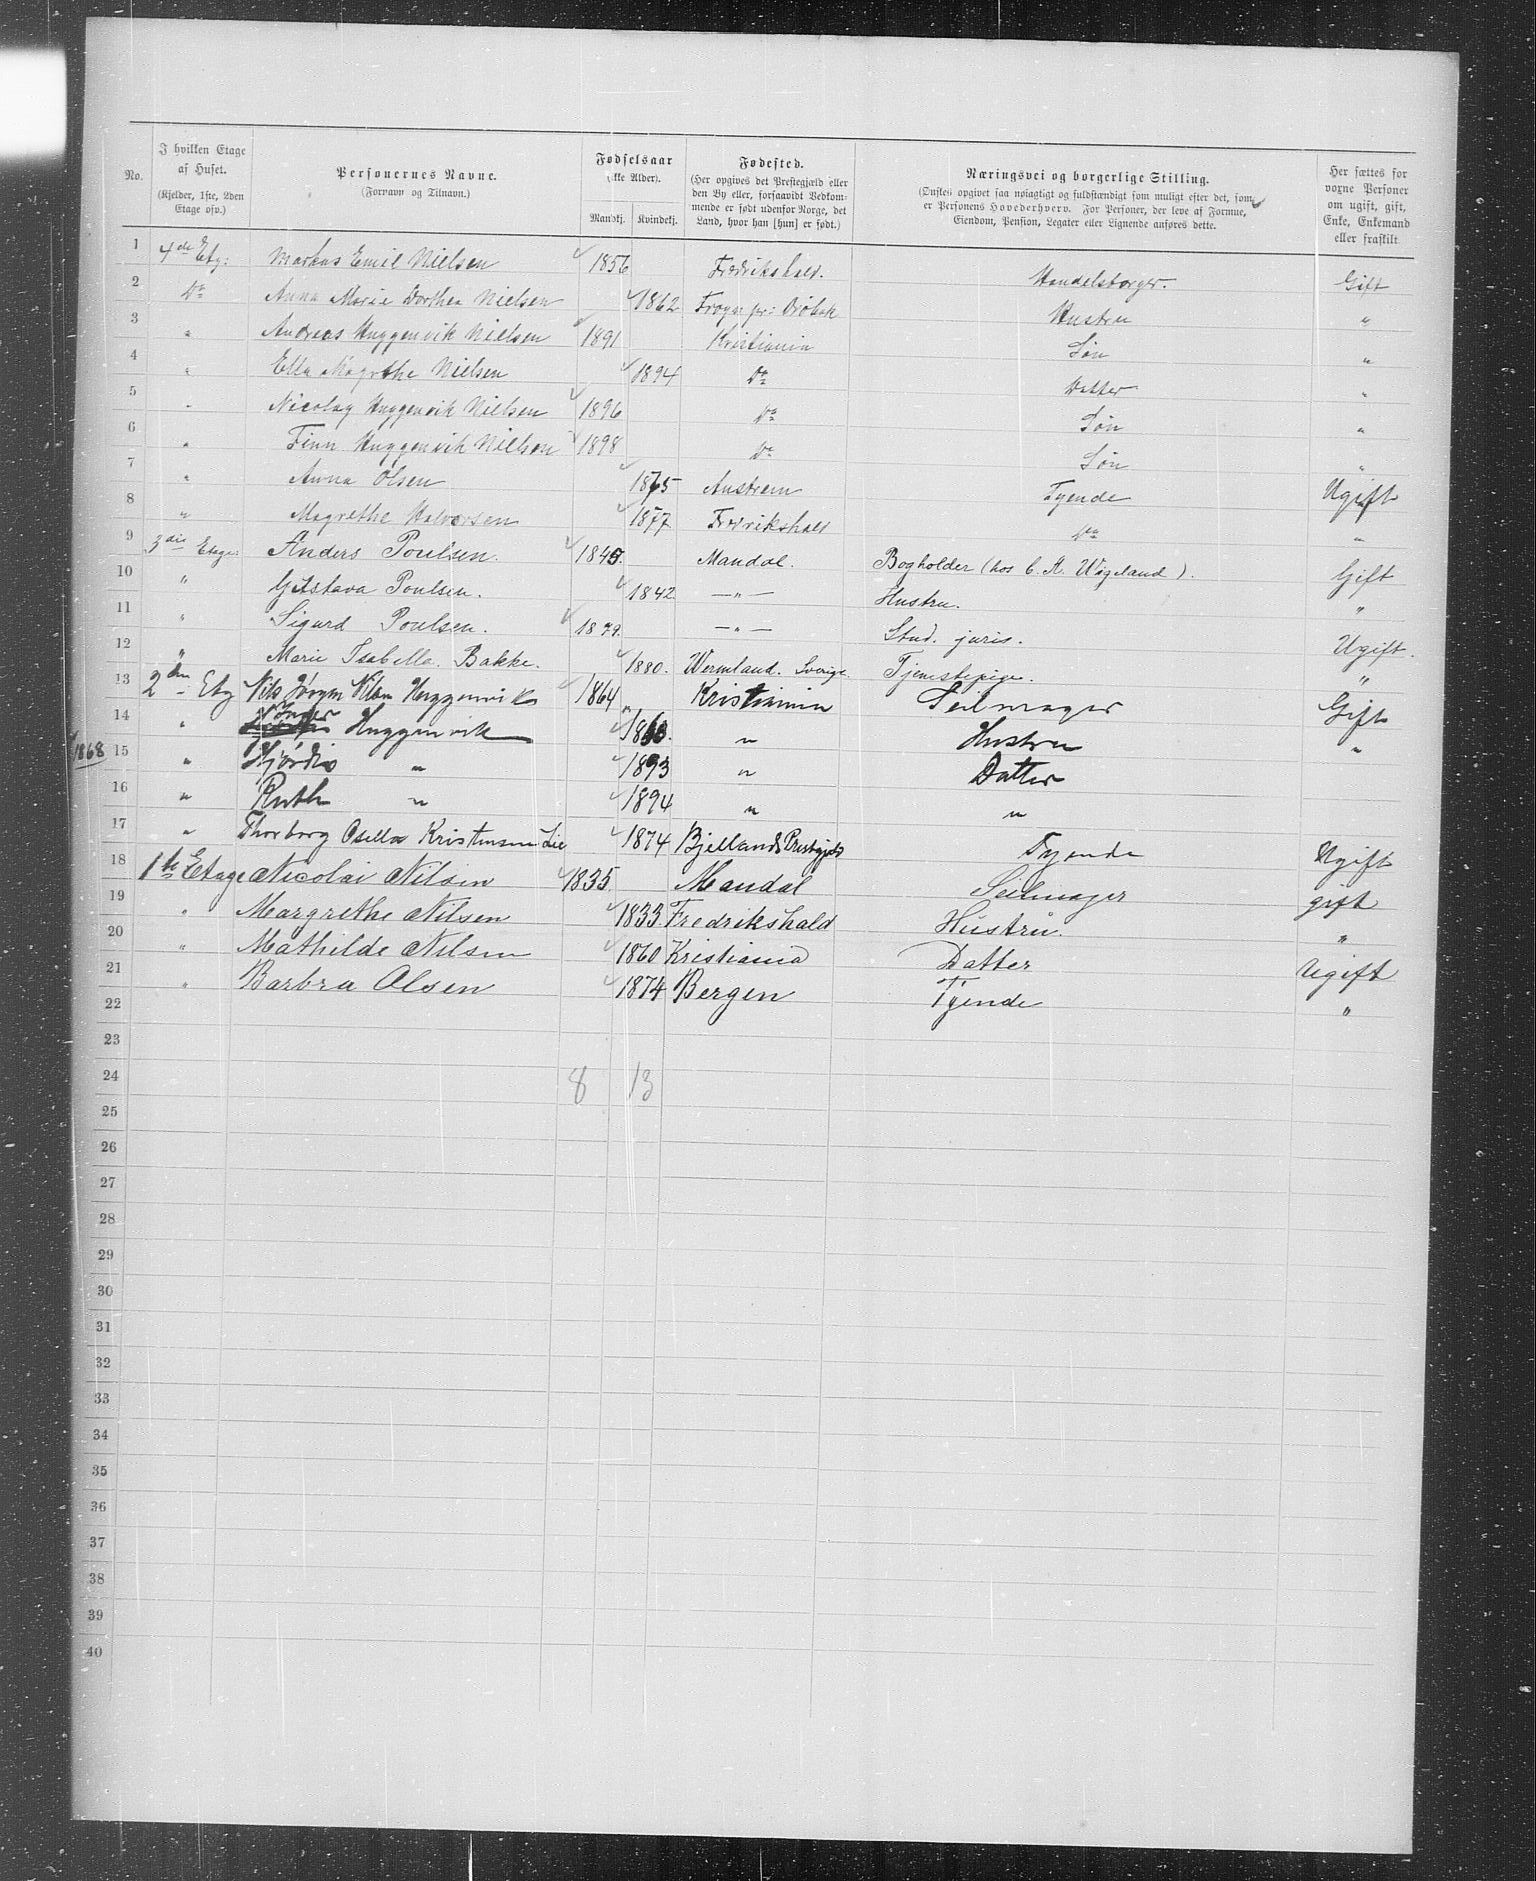 No. | I hvilken Etage af Huset. (Kjelder, 1ste, 2den Etage osv.) | Personernes Navne. (Fornavn og Tilnavn.) | Fødselsaar (ikke Alder). Mandkj. | Kvindekj. | Fødested. (Her opgives det Prestegjæld eller den By eller, forsaavidt Vedkommende er født udenfor Norge, det Land, hvor han [hun] er født.) | Næringsvei og borgerlige Stilling. (Ønskes opgivet saa nøiagtigt og fuldstændigt som muligt efter det, som er Personens Hovederhverv. For Personer, der leve af Formue, Eiendom, Pension, Legater eller Lignende anføres dette. | Her sættes for voxne Personer om ugift, gift, Enke, Enkemand eller fraskilt
1 4de Etg: Markus Emil Nielsen 1856 Fredrikshald. Handelsborger. Gift
2 Do Anna Marie Dorthea Nielsen 1862 Frogn pr: Drøbak Hustru "
3 " Andreas Huggenvik Nielsen 1891 Kristiania Søn "
4 " Ella Magrethe Nielsen 1894 Do Datter "
5 " Nicolay Huggenvik Nielsen 1896 Do Søn "
6 " Finn Huggenvik Nielsen 1898 Do Søn "
7 " Anna Olsen 1875 Austrem Tyende Ugift
8 " Magrethe Halvorsen 1877 Fredrikshald Do "
9 3die Etage: Anders Poulsen. 1845. Mandal. Bogholder (hos C. A. Wigeland). Gift
10 " Gustava Poulsen. 1842. —"— Hustru. "
11 " Sigurd Poulsen. 1879. —"— Stud. juris. Ugift.
12 " Marie Isabella. Bakke. 1880. Wermland. Sverige. Tjenestepige. "
13 2den Etg Nils Jørgen Huggenvik 1864 Kristiania Seilmager Gift
14 " Inger Huggenvik " Hustru "
1868
15 " Hjørdis " 1893 " Datter
16 " Ruth " 1894 " "
17 " Thorborg Kristensen Lie 1874 Bjellands Tyende Ugift
18 1ste Etage Nicolai Nilsen 1835 Mandal Seilmager gift
19 " Margrethe Nilsen 1833 Fredrikshald Hustru. "
20 " Mathilde Nilsen 1860 Kristiania Datter Ugift
21 " Barbra Olsen 1874 Bergen Tyende "
22
23
24 8 13
25
26
27
28
29
30
31
32
33
34
35
36
37
38
39
40